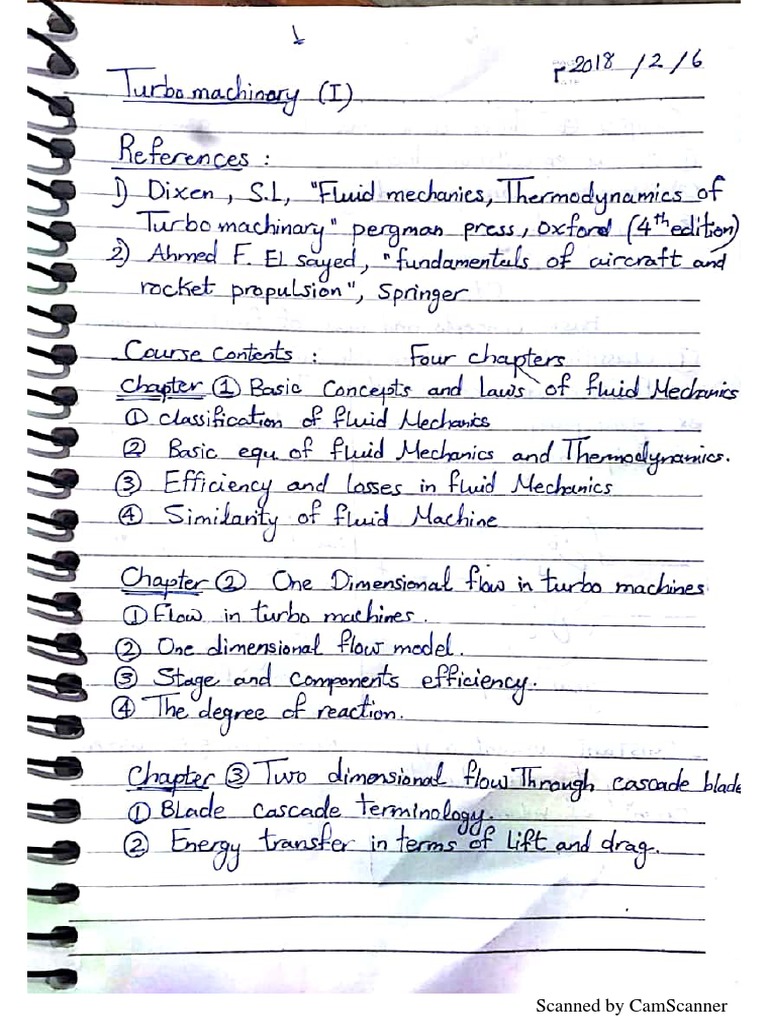 1
2018 / 2 / 6 م
Turbomachinary (I)
References :
1) Dixen, S.L, "Fluid mechanics, Thermodynamics of
Turbomachinary" pergman press, Oxford (4th edition)
2) Ahmed F. EL sayed, "fundamentals of aircraft and
rocket propulsion", Springer
Course Contents : Four chapters
Chapter ① Basic Concepts and laws of fluid Mechanics
① classification of fluid Mechanics
② Basic equ of fluid Mechanics and Thermodynamics.
③ Efficiency and losses in fluid Mechanics
④ Similarity of fluid Machine
Chapter ② One Dimensional flow in turbo machines
① Flow in turbo machines.
② One dimensional flow model.
③ Stage and components efficiency.
④ The degree of reaction.
Chapter ③ Two dimensional flow Through cascade blade
① Blade cascade terminology.
② Energy transfer in terms of lift and drag.
Scanned by CamScanner